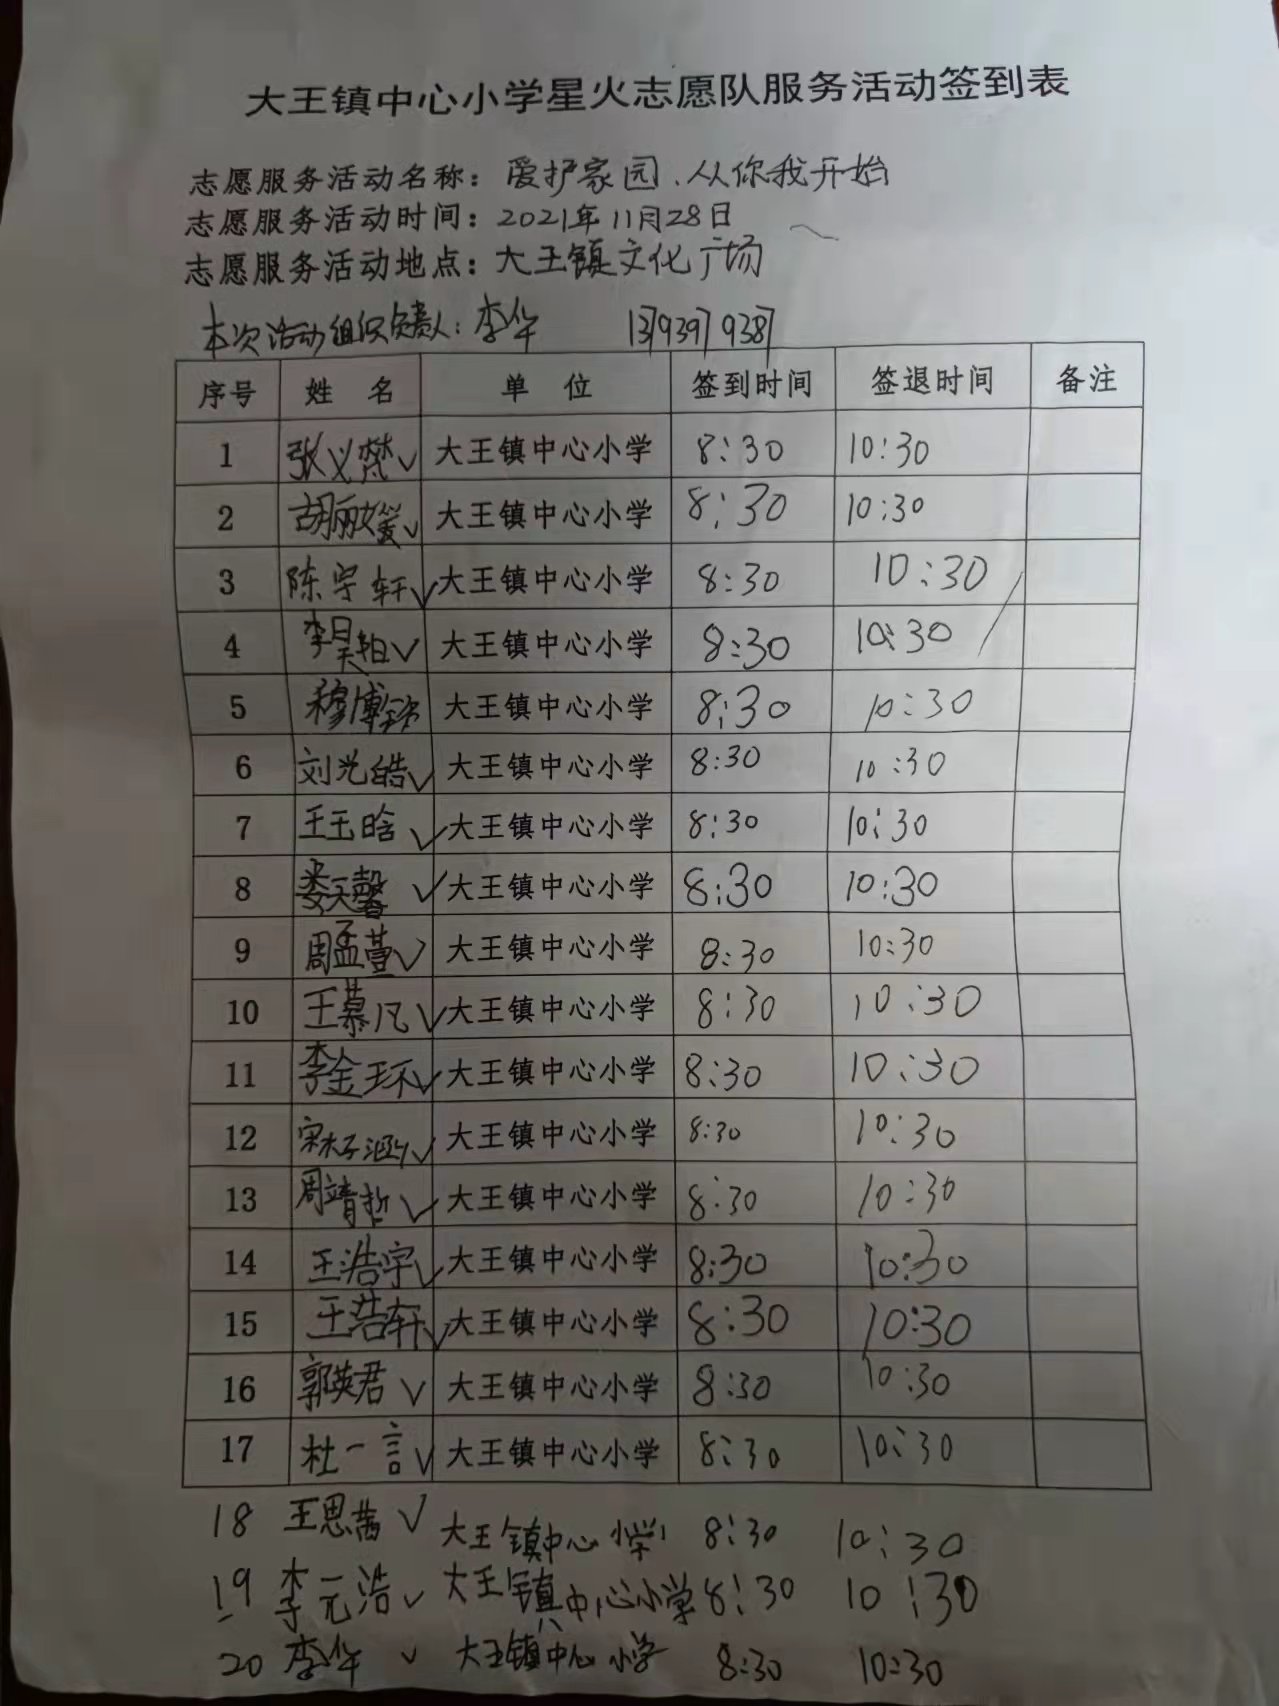 大王镇中心小学星火志愿队服务活动签到表
志愿服务活动名称：爱护家园、从你我开始
志愿服务活动时间：2021年11月28日
志愿服务活动地点：大王镇文化广场
本次活动组织负责人：李华 13793979387
序号 姓 名 单 位 签到时间 签退时间 备注
1 张义梵√ 大王镇中心小学 8:30 10:30
2 胡丽媛√ 大王镇中心小学 8:30 10:30
3 陈宇轩√ 大王镇中心小学 8:30 10:30
4 李昊柏√ 大王镇中心小学 8:30 10:30
5 穆博 大王镇中心小学 8:30 10:30
6 刘光皓√ 大王镇中心小学 8:30 10:30
7 王玉晗√ 大王镇中心小学 8:30 10:30
8 娄天馨√ 大王镇中心小学 8:30 10:30
9 周孟萱√ 大王镇中心小学 8:30 10:30
10 王慕凡√ 大王镇中心小学 8:30 10:30
11 李金环√ 大王镇中心小学 8:30 10:30
12 宋梓涵√ 大王镇中心小学 8:30 10:30
13 周靖哲√ 大王镇中心小学 8:30 10:30
14 王浩宇√ 大王镇中心小学 8:30 10:30
15 王浩轩√ 大王镇中心小学 8:30 10:30
16 郭英君√ 大王镇中心小学 8:30 10:30
17 杜一言√ 大王镇中心小学 8:30 10:30
18 王思茜√ 大王镇中心小学 8:30 10:30
19 李元浩√ 大王镇中心小学 8:30 10:30
20 李华√ 大王镇中心小学 8:30 10:30